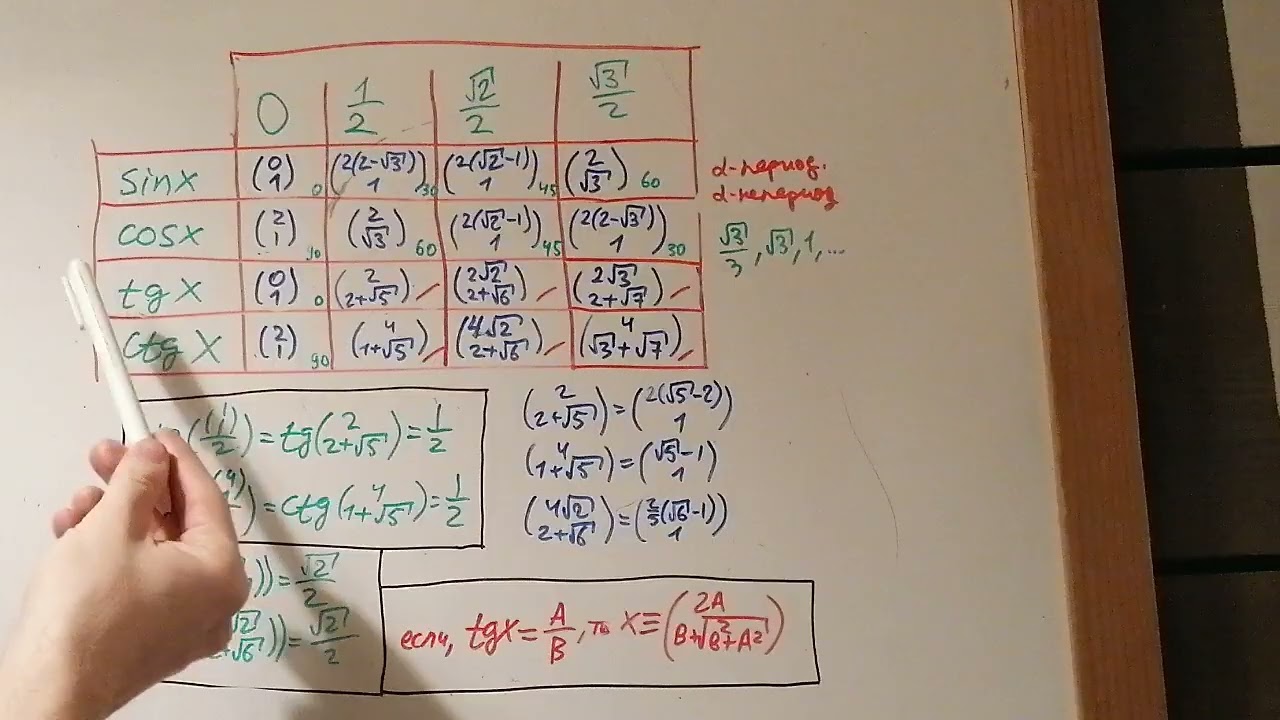 0 1/2 √2/2 √3/2
sinx (0 1) 0 (2(2-√3) 1) 30 (2(√2-1) 1) 45 (2 √3) 60
cosx (2 1) 90 (2 √3) 60 (2(√2-1) 1) 45 (2(2-√3) 1) 30
tgx (0 1) 0 (2 2+√5) (2√2 2+√6) (2√3 2+√7)
ctgx (2 1) 90 (4 1+√5) (4√2 2+√6) (4 √3+√7)
α-период.
α-непериод
√3/3, √3, 1, ...
= tg(2 2+√5) = 1/2
= ctg(4 1+√5) = 1/2
(2 2+√5) = (2(√5-2) 1)
(4 1+√5) = (√5-1 1)
(4√2 2+√6) = (2/5(√6-1) 1)
)) = √2/2
)) = √2/2
если, tgx = A/B, то x ≡ (2A B+√B²+A²)